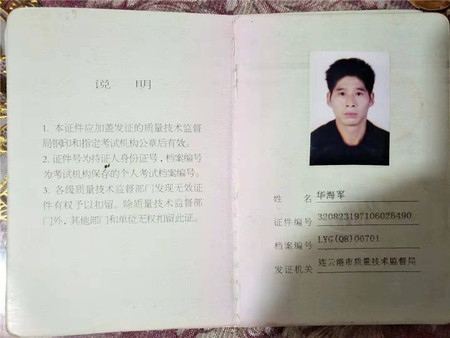 说 明
1. 本证件应加盖发证的质量技术监督
局钢印和指定考试机构公章后有效。
2. 证件号为持证人身份证号，档案编号
为考试机构保存的个人考试档案编号。
3. 各级质量技术监督部门发现无效证
件有权予以扣留。除质量技术监督部
门外，其他部门和单位无权扣留此证。
姓 名 华海军
证件编号 320823197106026490
档案编号 LYG(Q8)06701
发证机关 连云港市质量技术监督局